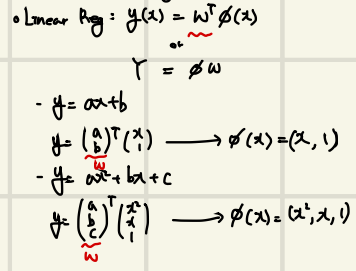 • Linear Reg : y(x) = wᵀ φ(x)
or
Y = φ w
- y = ax+b
y = (a b)ᵀ (x 1) ⟶ φ(x) = (x, 1)
w
- y = ax² + bx + c
y = (a b c)ᵀ (x² x 1) ⟶ φ(x) = (x², x, 1)
w